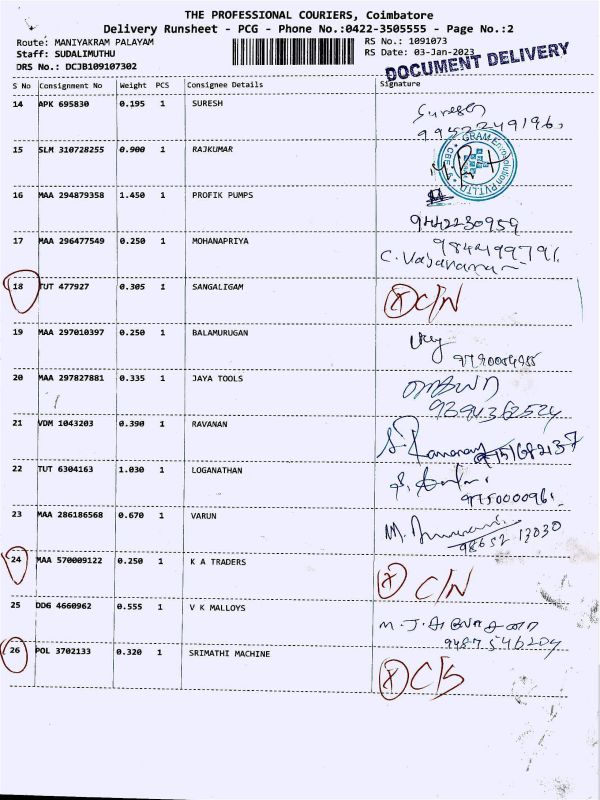 THE PROFESSIONAL COURIERS, Coimbatore
Delivery Runsheet - PCG - Phone No.:0422-3505555 - Page No.:2
Route: MANIYAKRAM PALAYAM RS No.: 1091073
Staff: SUDALIMUTHU RS Date: 03-Jan-2023
DRS No.: DCJB109107302
DOCUMENT DELIVERY
S No Consignment No Weight PCS Consignee Details Signature
14 APK 695830 0.195 1 SURESH Suresh
15 SLM 310728255 0.900 1 RAJKUMAR
16 MAA 294879358 1.450 1 PROFIK PUMPS 9442230959
17 MAA 296477549 0.250 1 MOHANAPRIYA
18 TUT 477927 0.305 1 SANGALIGAM X C/N
19 MAA 297010397 0.250 1 BALAMURUGAN
20 MAA 297827881 0.335 1 JAYA TOOLS
21 VDM 1043203 0.390 1 RAVANAN
22 TUT 6304163 1.030 1 LOGANATHAN
23 MAA 286186568 0.670 1 VARUN 98652 13030
24 MAA 570009122 0.250 1 K A TRADERS X C/N
25 DDG 4660962 0.555 1 V K MALLOYS
9487546204
26 POL 3702133 0.320 1 SRIMATHI MACHINE X C/S